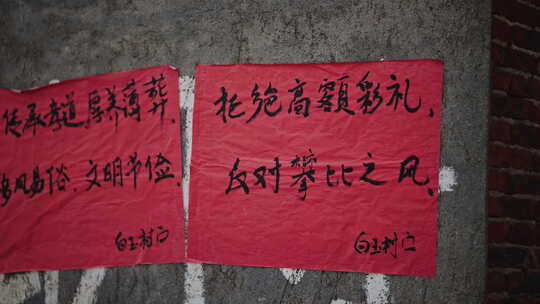 传承孝道厚养薄葬.
移风易俗.文明节俭.
白玉村宣
拒绝高額彩礼,
反对攀比之风.
白玉村宣